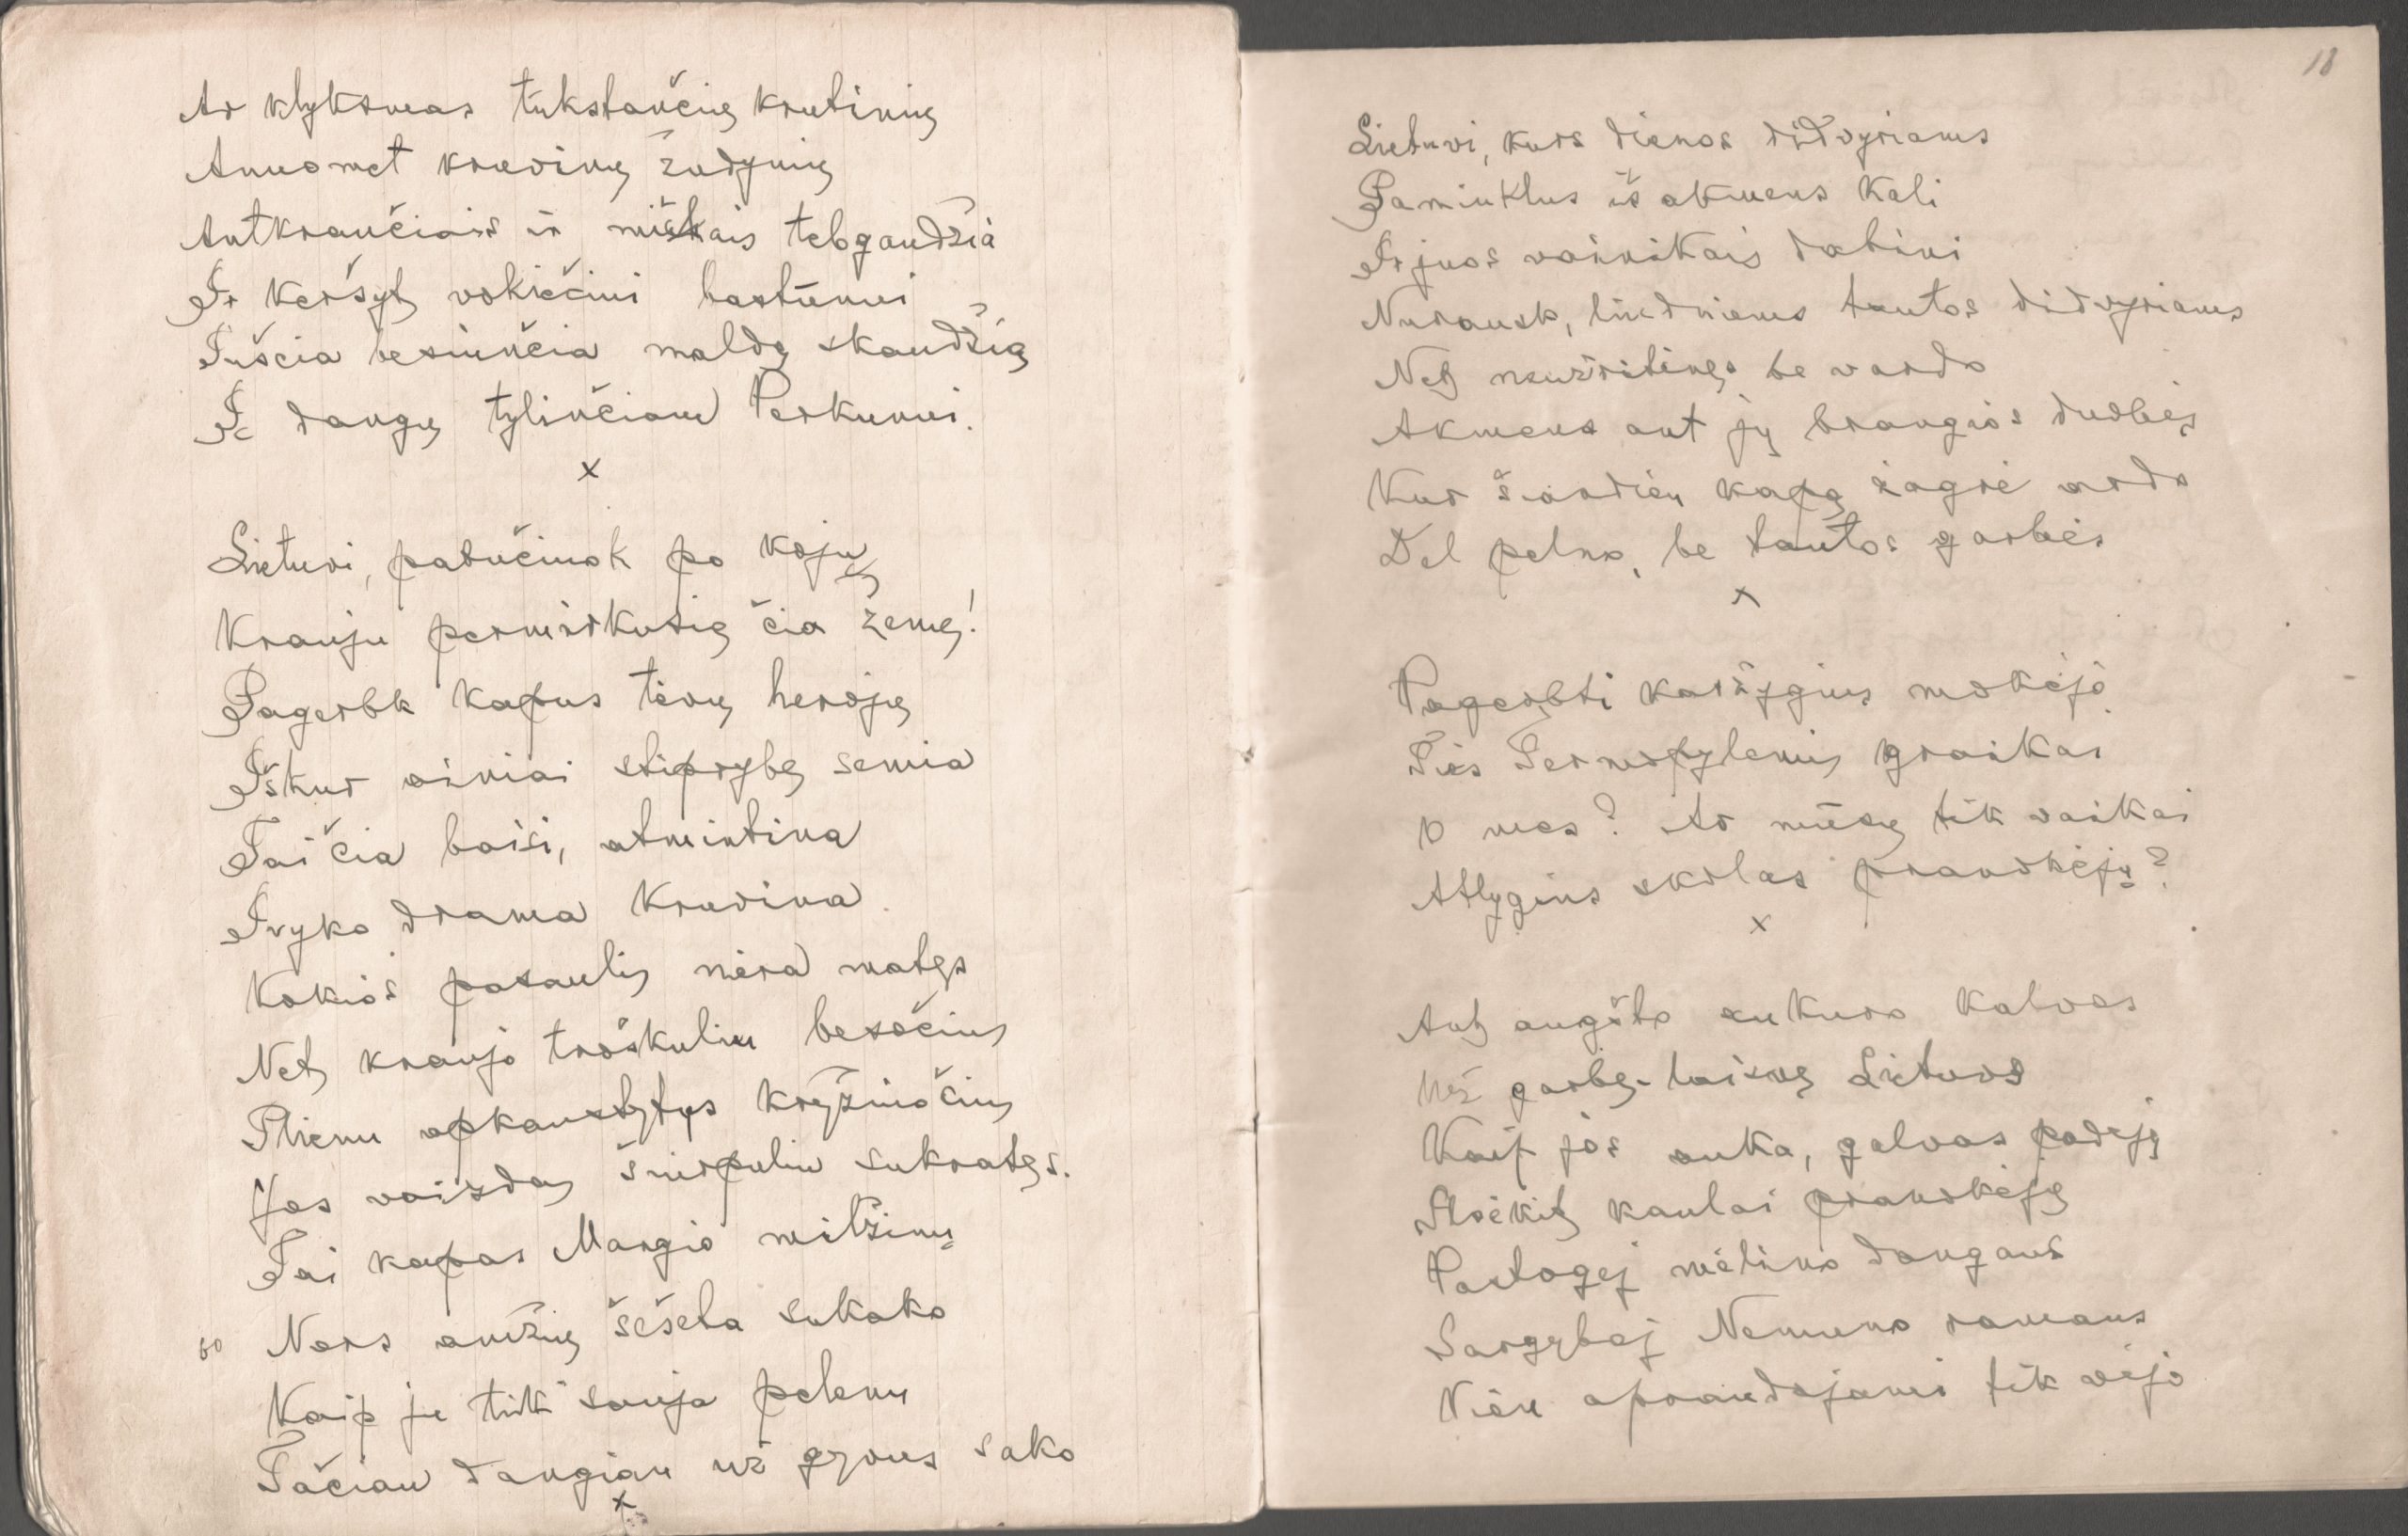 Ar klyksmas tūkstančių krutinių
Anuomet kruvinų žudynių
Antkraučiais ir miškais tebgaudžia
Ir keršyt vokiečiui kastūnui
Tuščia besiunčia maldą skaudžią
Į dangų tylinčiam Perkunui.
x
Lietuvi, pabučiuok po kojų
Krauju permirkusią čia žemę!
Pagerbk kapus tėvų herojų
Iškur ainiai stiprybę semia
Tai čia baisi, atmintina
Įvyko drama kruvina
Kokios pasaulis nėra matęs
Net kraujo troškuliu besočius
Plienu apkaustytus kryžiuočius
Jos vaizdas šiurpuliu sukratęs.
Tai kapas Margio milžinų
Nors amžių šešeta sukako
60
Kaip jų tik sauja pelenų
Tačiau daugiau už gyvus sako
x
18
Lietuvi, kurs dienos didvyriams
Paminklus iš akmens kali
Ir juos vainikais dabini
Nurausk, liūdniems tautos didvyriams
Net neužritinęs be vardo
Akmens ant jų brangios duobės
Kur šiandien kapą žagrė ardo
Dėl pelno, be tautos garbės
x
Pagerbti karžygius mokėjo
Ties Termopylemis graikai
O mes? Ar mūsų tik vaikai
Atlygins skolas pranokėjų?
x
Ant augšto aukuro kalvos
Už garbę-laisvę Lietuvos
Kaip jos auka, galvas padėję
Ilsėkit kaulai pranokėjų
Pastogėj mėlino dangaus
Sargyboj Nemuno ramaus
Vien apraudojami tik vėjo